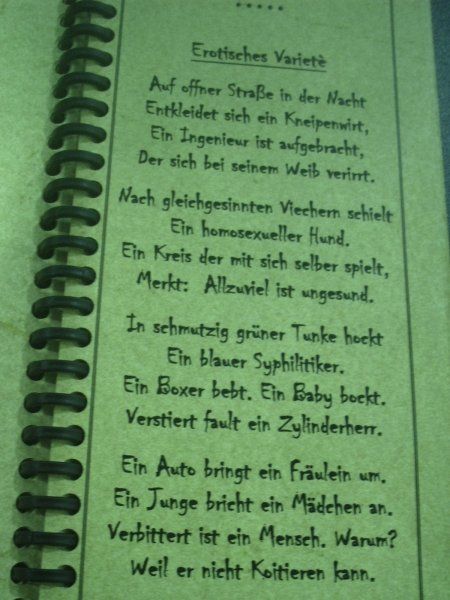 Erotisches Varietè
Auf offner Straße in der Nacht
Entkleidet sich ein Kneipenwirt,
Ein Ingenieur ist aufgebracht,
Der sich bei seinem Weib verirrt.
Nach gleichgesinnten Viechern schielt
Ein homosexueller Hund.
Ein Kreis der mit sich selber spielt,
Merkt: Allzuviel ist ungesund.
In schmutzig grüner Tunke hockt
Ein blauer Syphilitiker.
Ein Boxer bebt. Ein Baby bockt.
Verstiert fault ein Zylinderherr.
Ein Auto bringt ein Fräulein um.
Ein Junge bricht ein Mädchen an.
Verbittert ist ein Mensch. Warum?
Weil er nicht Koitieren kann.